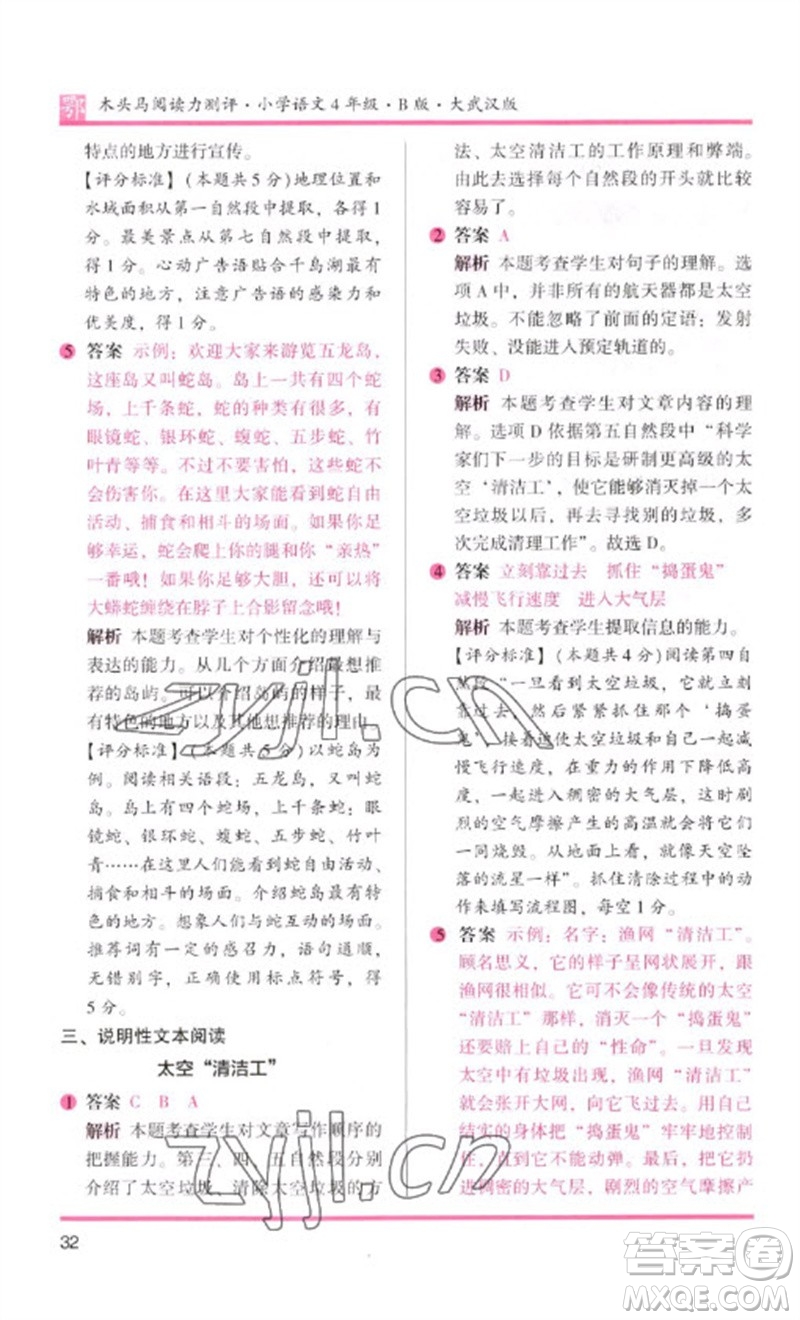 鄂
木头马阅读力测评·小学语文4年级·B版·大武汉版
特点的地方进行宣传。
【评分标准】(本题共5分)地理位置和
水域面积从第一自然段中提取，各得1
分。最美景点从第七自然段中提取，
得1分。心动广告语贴合千岛湖最具
特色的地方，注意广告语的感染力和
优美度，得1分。
5 答案 示例：欢迎大家来游览五龙岛，
这座岛又叫蛇岛。岛上一共有四个蛇
场，上千条蛇，蛇的种类有很多，有
眼镜蛇、银环蛇、蝮蛇、五步蛇、竹
叶青等等。不过不要害怕，这些蛇不
会伤害你。在这里大家能看到蛇自由
活动、捕食和相斗的场面。如果你足
够幸运，蛇会爬上你的腿和你“亲热”
一番哦！如果你足够大胆，还可以将
大蟒蛇缠绕在脖子上合影留念哦！
解析 本题考查学生对个性化的理解与
表达的能力。从几个方面介绍最想推
荐的岛屿。可以写岛屿的样子，最有
特色的地方以及其他想推荐的理由。
【评分标准】(本题共5分)以蛇岛为
例。阅读相关语段：五龙岛，又叫蛇
岛。岛上有四个蛇场，上千条蛇：眼
镜蛇、银环蛇、蝮蛇、五步蛇、竹叶
青……在这里，可以看到蛇自由活动、
捕食和相斗的场面。介绍蛇岛的地方
和特点。想象人和蛇亲密接触的画面。
推荐词有一定的感召力，语句通顺，
无错别字，正确使用标点符号，得
5分。
三、说明性文本阅读
太空“清洁工”
1 答案 C B A
解析 本题考查学生对文章写作顺序的
把握能力。第三、四、五自然段分别
介绍了太空垃圾、清除太空垃圾的方
法、太空清洁工的工作原理和弊端。
由此去选择每个自然段的开头就比较
容易了。
2 答案 A
解析 本题考查学生对句子的理解。选
项A中，并非所有的航天器都是太空
垃圾。不能忽略了前面的定语：发射
失败、没能进入预定轨道的。
3 答案 D
解析 本题考查学生对文章内容的理
解。选项D依据第五自然段中“科学
家们下一步的目标是研制更高级的太
空‘清洁工’，使它能够消灭掉一个太
空垃圾以后，再去寻找别的垃圾，多
次完成清理工作”。故选D。
4 答案 立刻靠过去 抓住“捣蛋鬼”
减慢飞行速度 进入大气层
解析 本题考查学生提取信息的能力。
【评分标准】(本题共4分)阅读第四自
然段“一旦看到太空垃圾，它就立刻
靠过去，然后紧紧抓住那个‘捣蛋
鬼’。接着迫使太空垃圾和它一起减
慢飞行速度，在重力的作用下降低高
度，一起进入稠密的大气层。这时剧
烈的空气摩擦产生的高温就会将它们
一同烧毁。从地面上看，就像天空坠
落的流星一样”。抓住清除过程中的动
作来填写流程图，每空1分。
5 答案 示例：名字：渔网“清洁工”。
顾名思义，它的样子呈网状展开，跟
渔网很相似。它可不会像传统的太空
“清洁工”那样，消灭一个“捣蛋鬼”
还要赔上自己的“性命”。要是发现
太空中有垃圾出现，渔网“清洁工”
就会张开大网，飞过去，用自己
结实的身体把“捣蛋鬼”牢牢地控制
住，使它不能动弹。最后把垃圾甩
进稠密的大气层，剧烈的空气摩擦产
32
zyjl.cn
zyjl.cn
答案卷